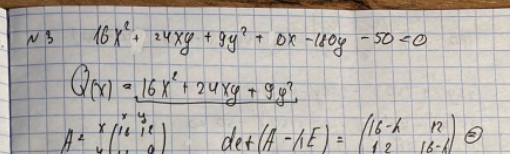 N 3 16x² + 24xy + 9y² + 0x - 180y - 50 = 0
Q(x) = 16x² + 24xy + 9y²
x y
A = x (16 12 det (A - λE) = (16-λ 12
y 9 12 16-λ